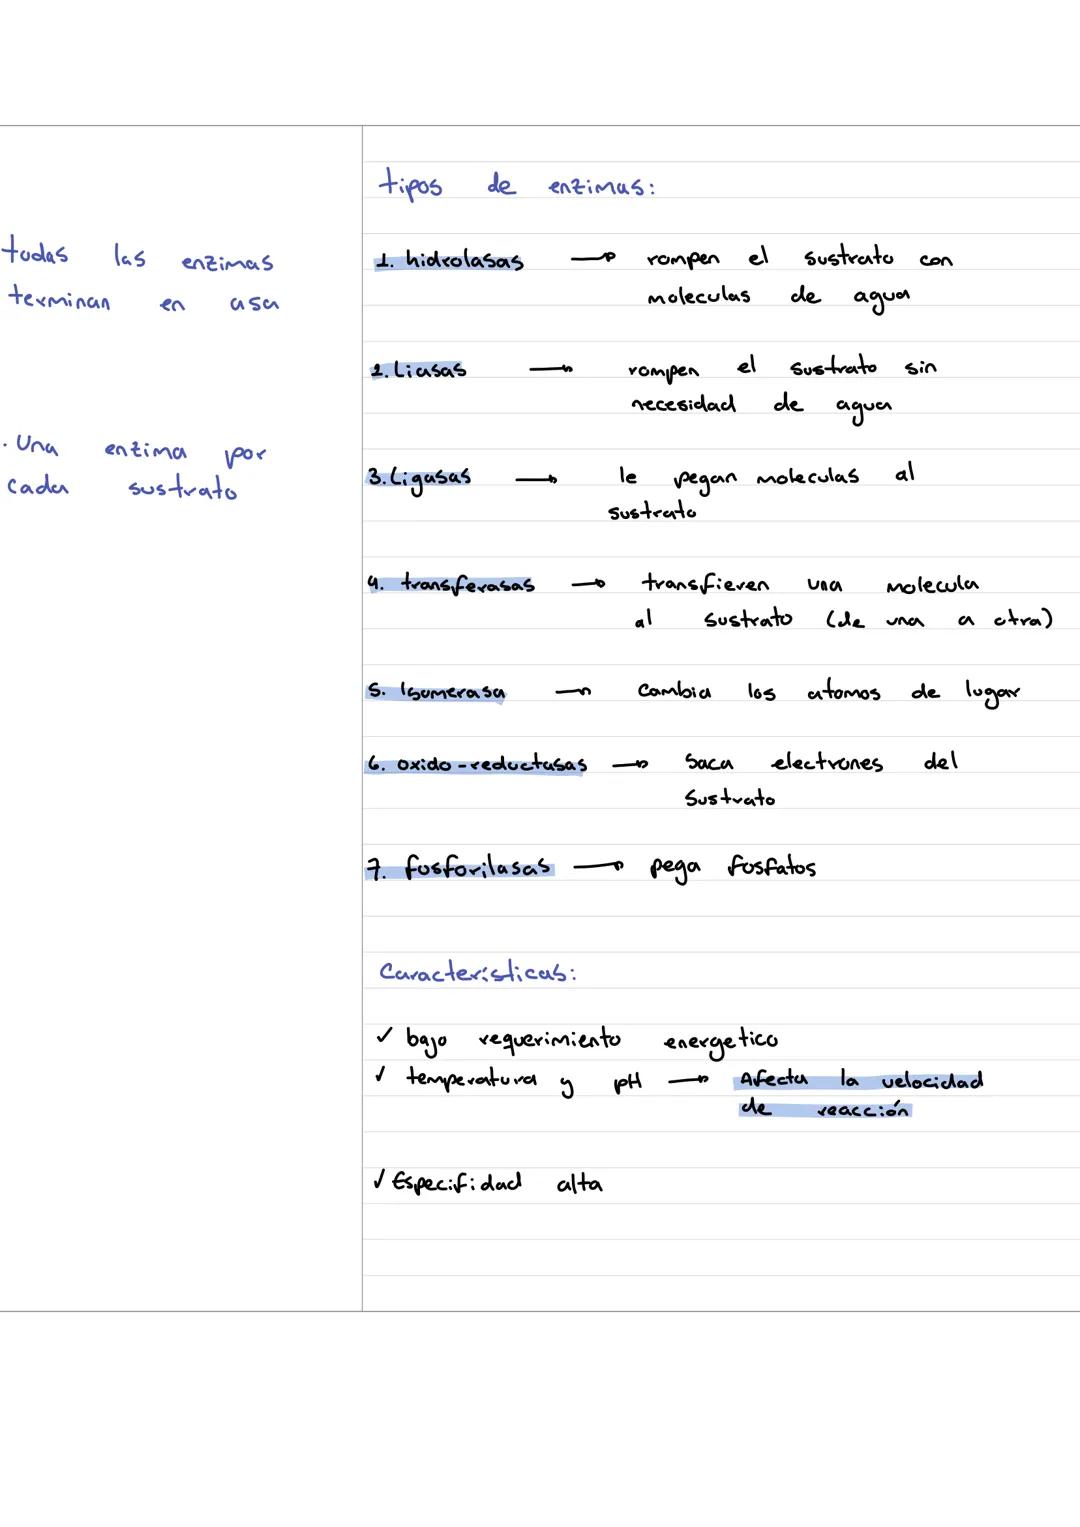 todas las enzimas
terminan en asa
. Una enzima por
cada sustrato
tipos de enzimas:
1. hidrolasas → rompen el sustrato con
moleculas de agua
2. Liasas → rompen el sustrato sin
necesidad de agua
3. Ligasas → le pegan moleculas al
sustrato
4. transferasas → transfieren una molecula
al sustrato (de una a otra)
5. Isomerasa → cambia los atomos de lugar
6. oxido-reductasas → saca electrones del
sustrato
7. fosforilasas → pega fosfatos
Características:
✓ bajo requerimiento energetico
✓ temperatura y pH → Afecta la velocidad
de reacción
✓ Especifidad alta